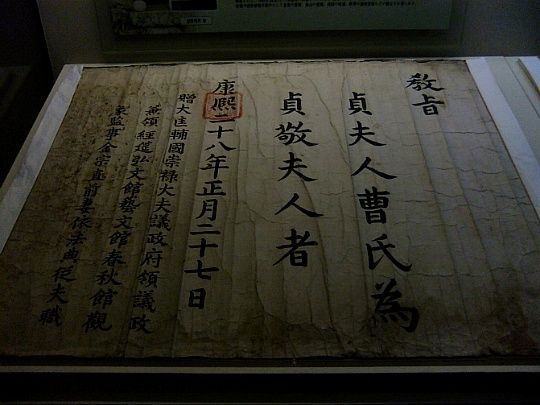 敎旨
貞夫人曹氏為
貞敬夫人者
康熙二十八年正月二十七日
贈大匡輔國崇祿大夫議政府領議政
兼領經筵弘文館藝文館春秋館觀
象監事金宗直前妻依法典從夫職